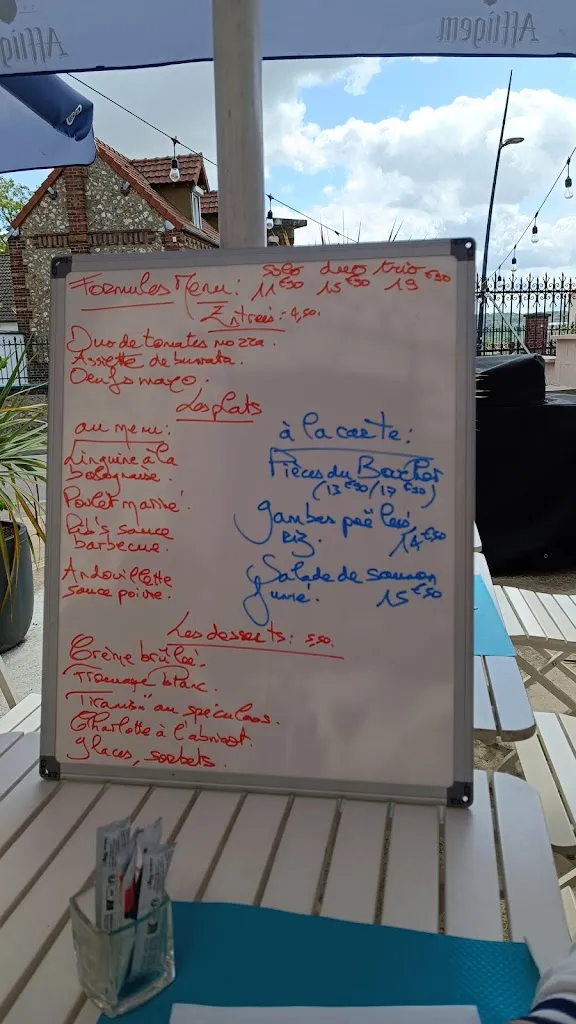 Affligem
Affligem
Formules Menu : solo duo trio
11€50 15€50 19€50
Entrées : 4,50.
Duo de tomates mozza.
Assiette de burrata.
Oeufs mayo.
Les plats
au menu :
Linguine à la
bolognaise.
Poulet mariné.
Rib's sauce
barbecue.
Andouillette
sauce poivre.
à la carte :
Pièces du Boucher
(13€50/17€50)
Gambas poêlées
Riz. 14€50
Salade de saumon
fumé. 15€50
Les desserts : 5,50.
Crème brûlée.
Fromage blanc.
Tiramisu au spéculoos.
Charlotte à l'abricot.
Glaces, sorbets.